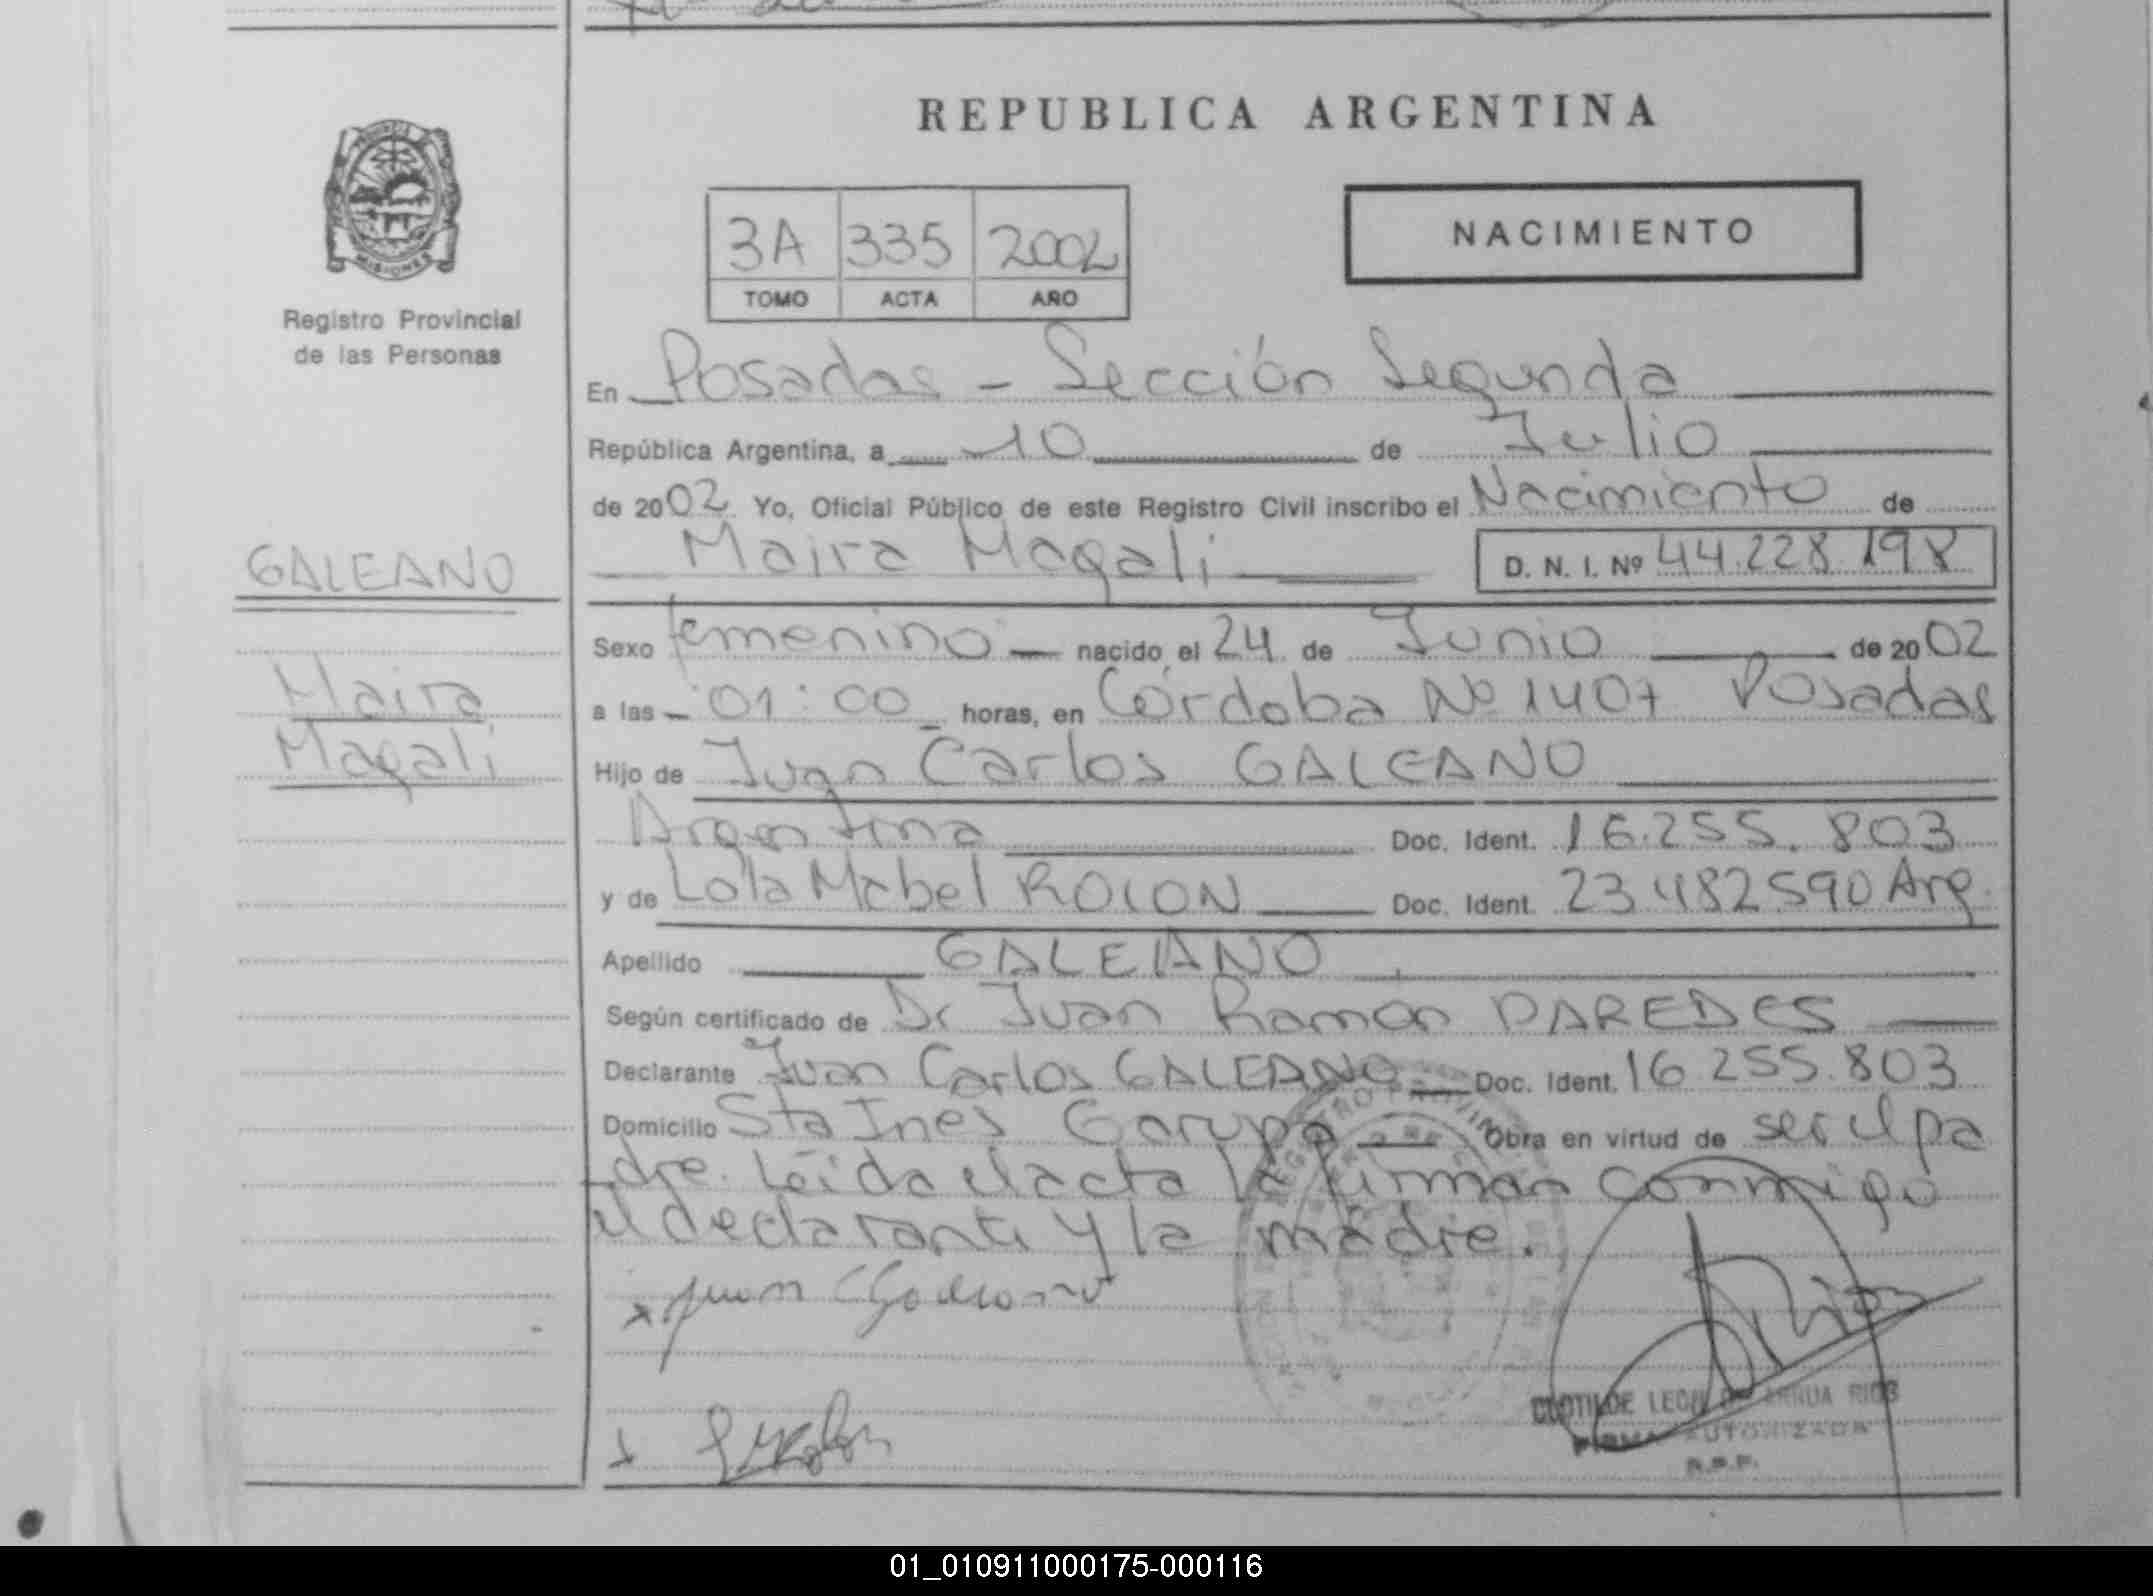 REPUBLICA ARGENTINA
MISIONES
Registro Provincial
de las Personas
3A 335 2002
TOMO ACTA AÑO
NACIMIENTO
En Posadas - Sección Segunda
República Argentina, a 10 de Julio
de 2002 Yo, Oficial Público de este Registro Civil inscribo el Nacimiento de
Maira Magali D. N. I. Nº 44.228.198
GALEANO
Maira
Magali
Sexo femenino nacido el 24 de Junio de 2002
a las 01:00 horas, en Córdoba Nº 1407 Posadas
Hijo de Juan Carlos GALEANO
Argentina Doc. Ident. 16.255.803
y de Lola Mabel ROLON Doc. Ident. 23.482590 Arg.
Apellido GALEANO
Según certificado de Dr Juan Ramon PAREDES
Declarante Juan Carlos GALEANO Doc. Ident. 16.255.803
Domicilio Sta Ines Garupa Obra en virtud de ser el pa
dre. Leida el acta la firman conmigo
el declarante y la madre.
CLOTILDE ARRUA RIOS
FIRMA AUTORIZADA
R.P.P.
01_010911000175-000116